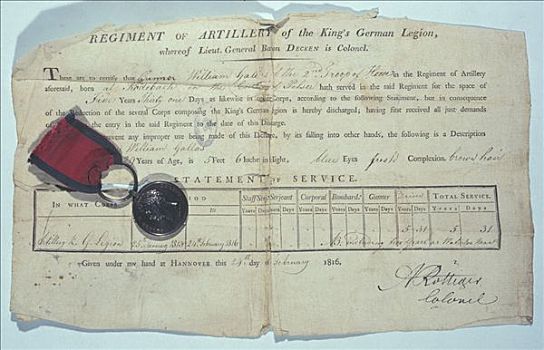 REGIMENT OF ARTILLERY of the King's German Legion,
whereof Lieut. General Baron DECKEN is Colonel.
These are to certify that Gunner William Gallas of the 2nd Troop of Horse in the Regiment of Artillery
aforesaid, born at in the of hath served in the said Regiment for the space of
Five Years Thirty one Days as likewise in other Corps, according to the following Statement, but in consequence
of the Reduction of the several Corps composing the King's German Legion is hereby discharged; having first received all just demands
the entry in the said Regiment to the date of this Discharge.
prevent any improper use being made of this Discharge, by its falling into other hands, the following is a Description
William Gallas
29 Years of Age, is 5 Feet 6 Inches in Hight, blue Eyes fresh Complexion, brown hair
STATEMENT OF SERVICE.
IN WHAT CORPS PERIOD Staff Serj. Serjeant Corporal Bombard. Gunner TOTAL SERVICE.
to Years Days Years Days Years Days Years Days Years Days Years Days Years Days
Artillery K. G. Legion 24 February 1816 5 31 5 31
including two Years as Waterloo
Given under my hand at HANNOVER this 24th day of February 1816.
A Röttiger
Colonel